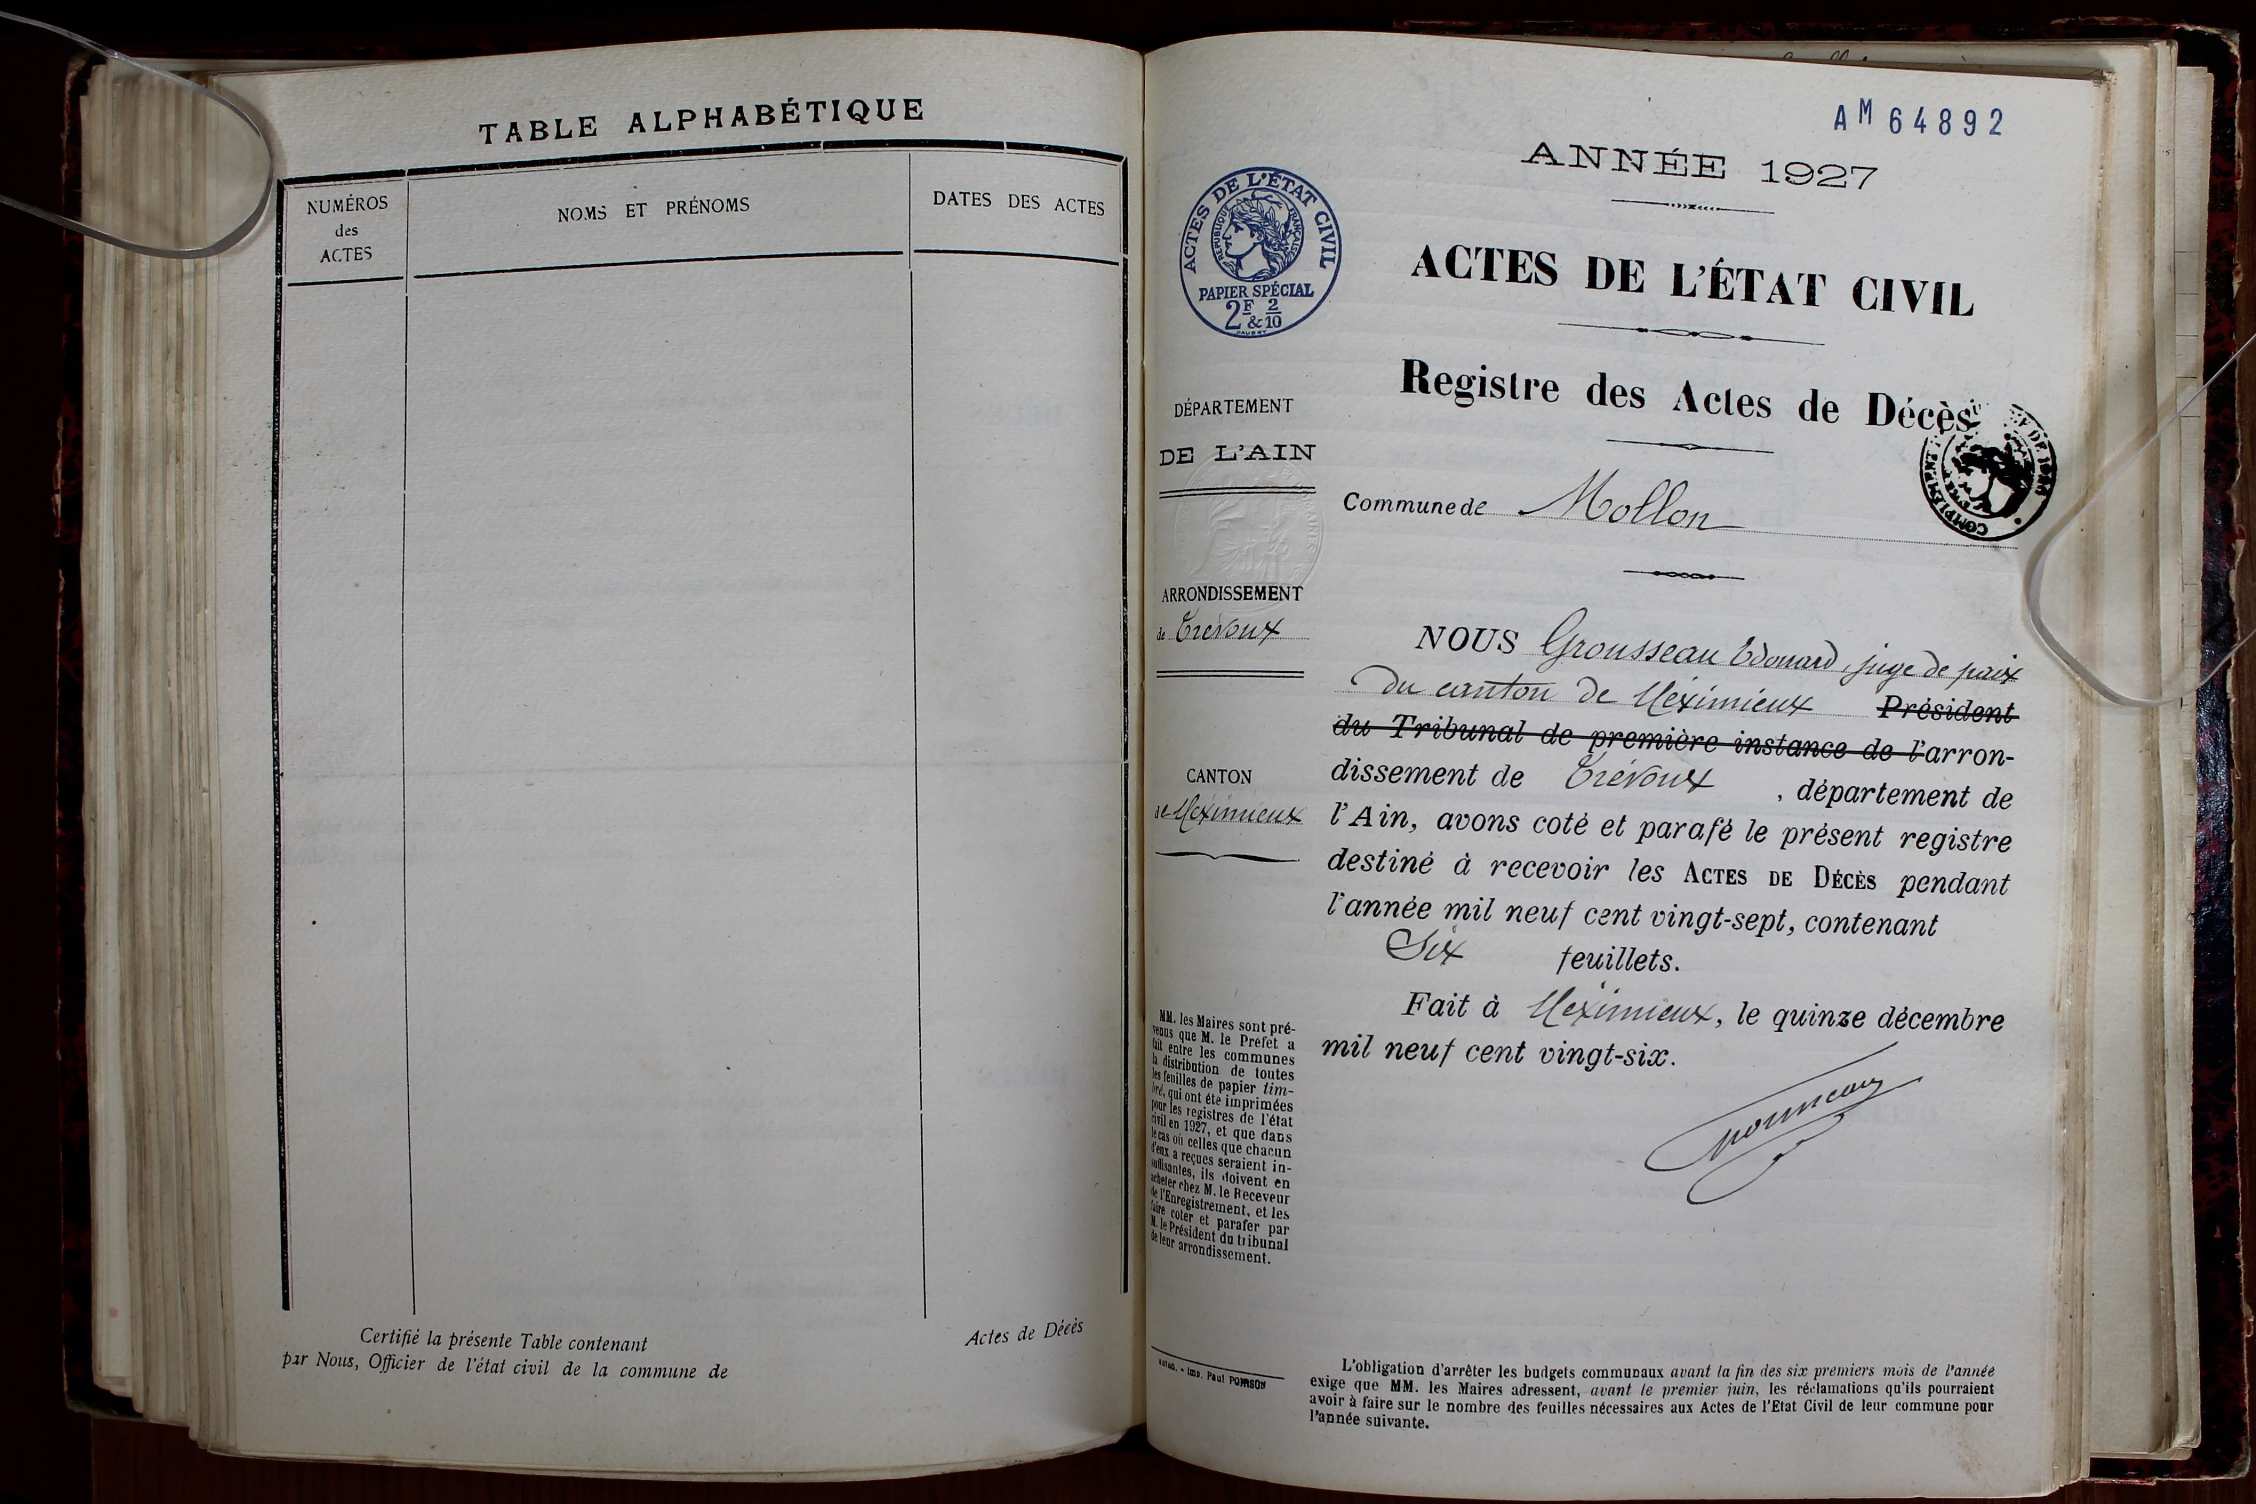 TABLE ALPHABÉTIQUE
NUMÉROS
des
ACTES
NOMS ET PRÉNOMS
DATES DES ACTES
Certifié la présente Table contenant
Actes de Décès
par Nous, Officier de l'état civil de la commune de
AM 64892
ANNÉE 1927
ACTES DE L'ÉTAT CIVIL
RÉPUBLIQUE FRANÇAISE
PAPIER SPÉCIAL
2F & 2/10
ACTES DE L'ÉTAT CIVIL
Registre des Actes de Décès
COMPLÉMENT
DÉPARTEMENT
DE L'AIN
Commune de Mollon
ARRONDISSEMENT
de Trévoux
CANTON
de Meximieux
MM. les Maires sont pré-
venus que M. le Préfet a
fait entre les communes
la distribution de toutes
les feuilles de papier tim-
bré, qui ont été imprimées
pour les registres de l'état
civil en 1927, et que dans
le cas où celles que chacun
d'eux a reçues seraient in-
suffisantes, ils doivent en
acheter chez M. le Receveur
de l'Enregistrement, et les
faire coter et parafer par
M. le Président du tribunal
de leur arrondissement.
NOUS Grousseau Edouard, juge de paix
du canton de Méximieux Président
du Tribunal de première instance de l'arron-
dissement de Trévoux, département de
l'Ain, avons coté et parafé le présent registre
destiné à recevoir les ACTES DE DÉCÈS pendant
l'année mil neuf cent vingt-sept, contenant
Six feuillets.
Fait à Meximieux, le quinze décembre
mil neuf cent vingt-six.
Imp. Paul POMSON
L'obligation d'arrêter les budgets communaux avant la fin des six premiers mois de l'année
exige que MM. les Maires adressent, avant le premier juin, les réclamations qu'ils pourraient
avoir à faire sur le nombre des feuilles nécessaires aux Actes de l'Etat Civil de leur commune pour
l'année suivante.